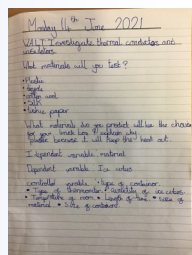 Monday 14th June 2021
WALT Investigate thermal conductors and
insulators.
What materials will you test?
• Plastic
•
• cotton wool
•
• paper
What materials do you predict will be the
for your lunch box? explain why
Plastic because I will keep the heat out.
Independent variable material
Dependent variable Ice cubes
controlled variable • Type of container
• Type of thermometer • of ice cubes
• Temperature of room • Length of time • size of
material • Size of container